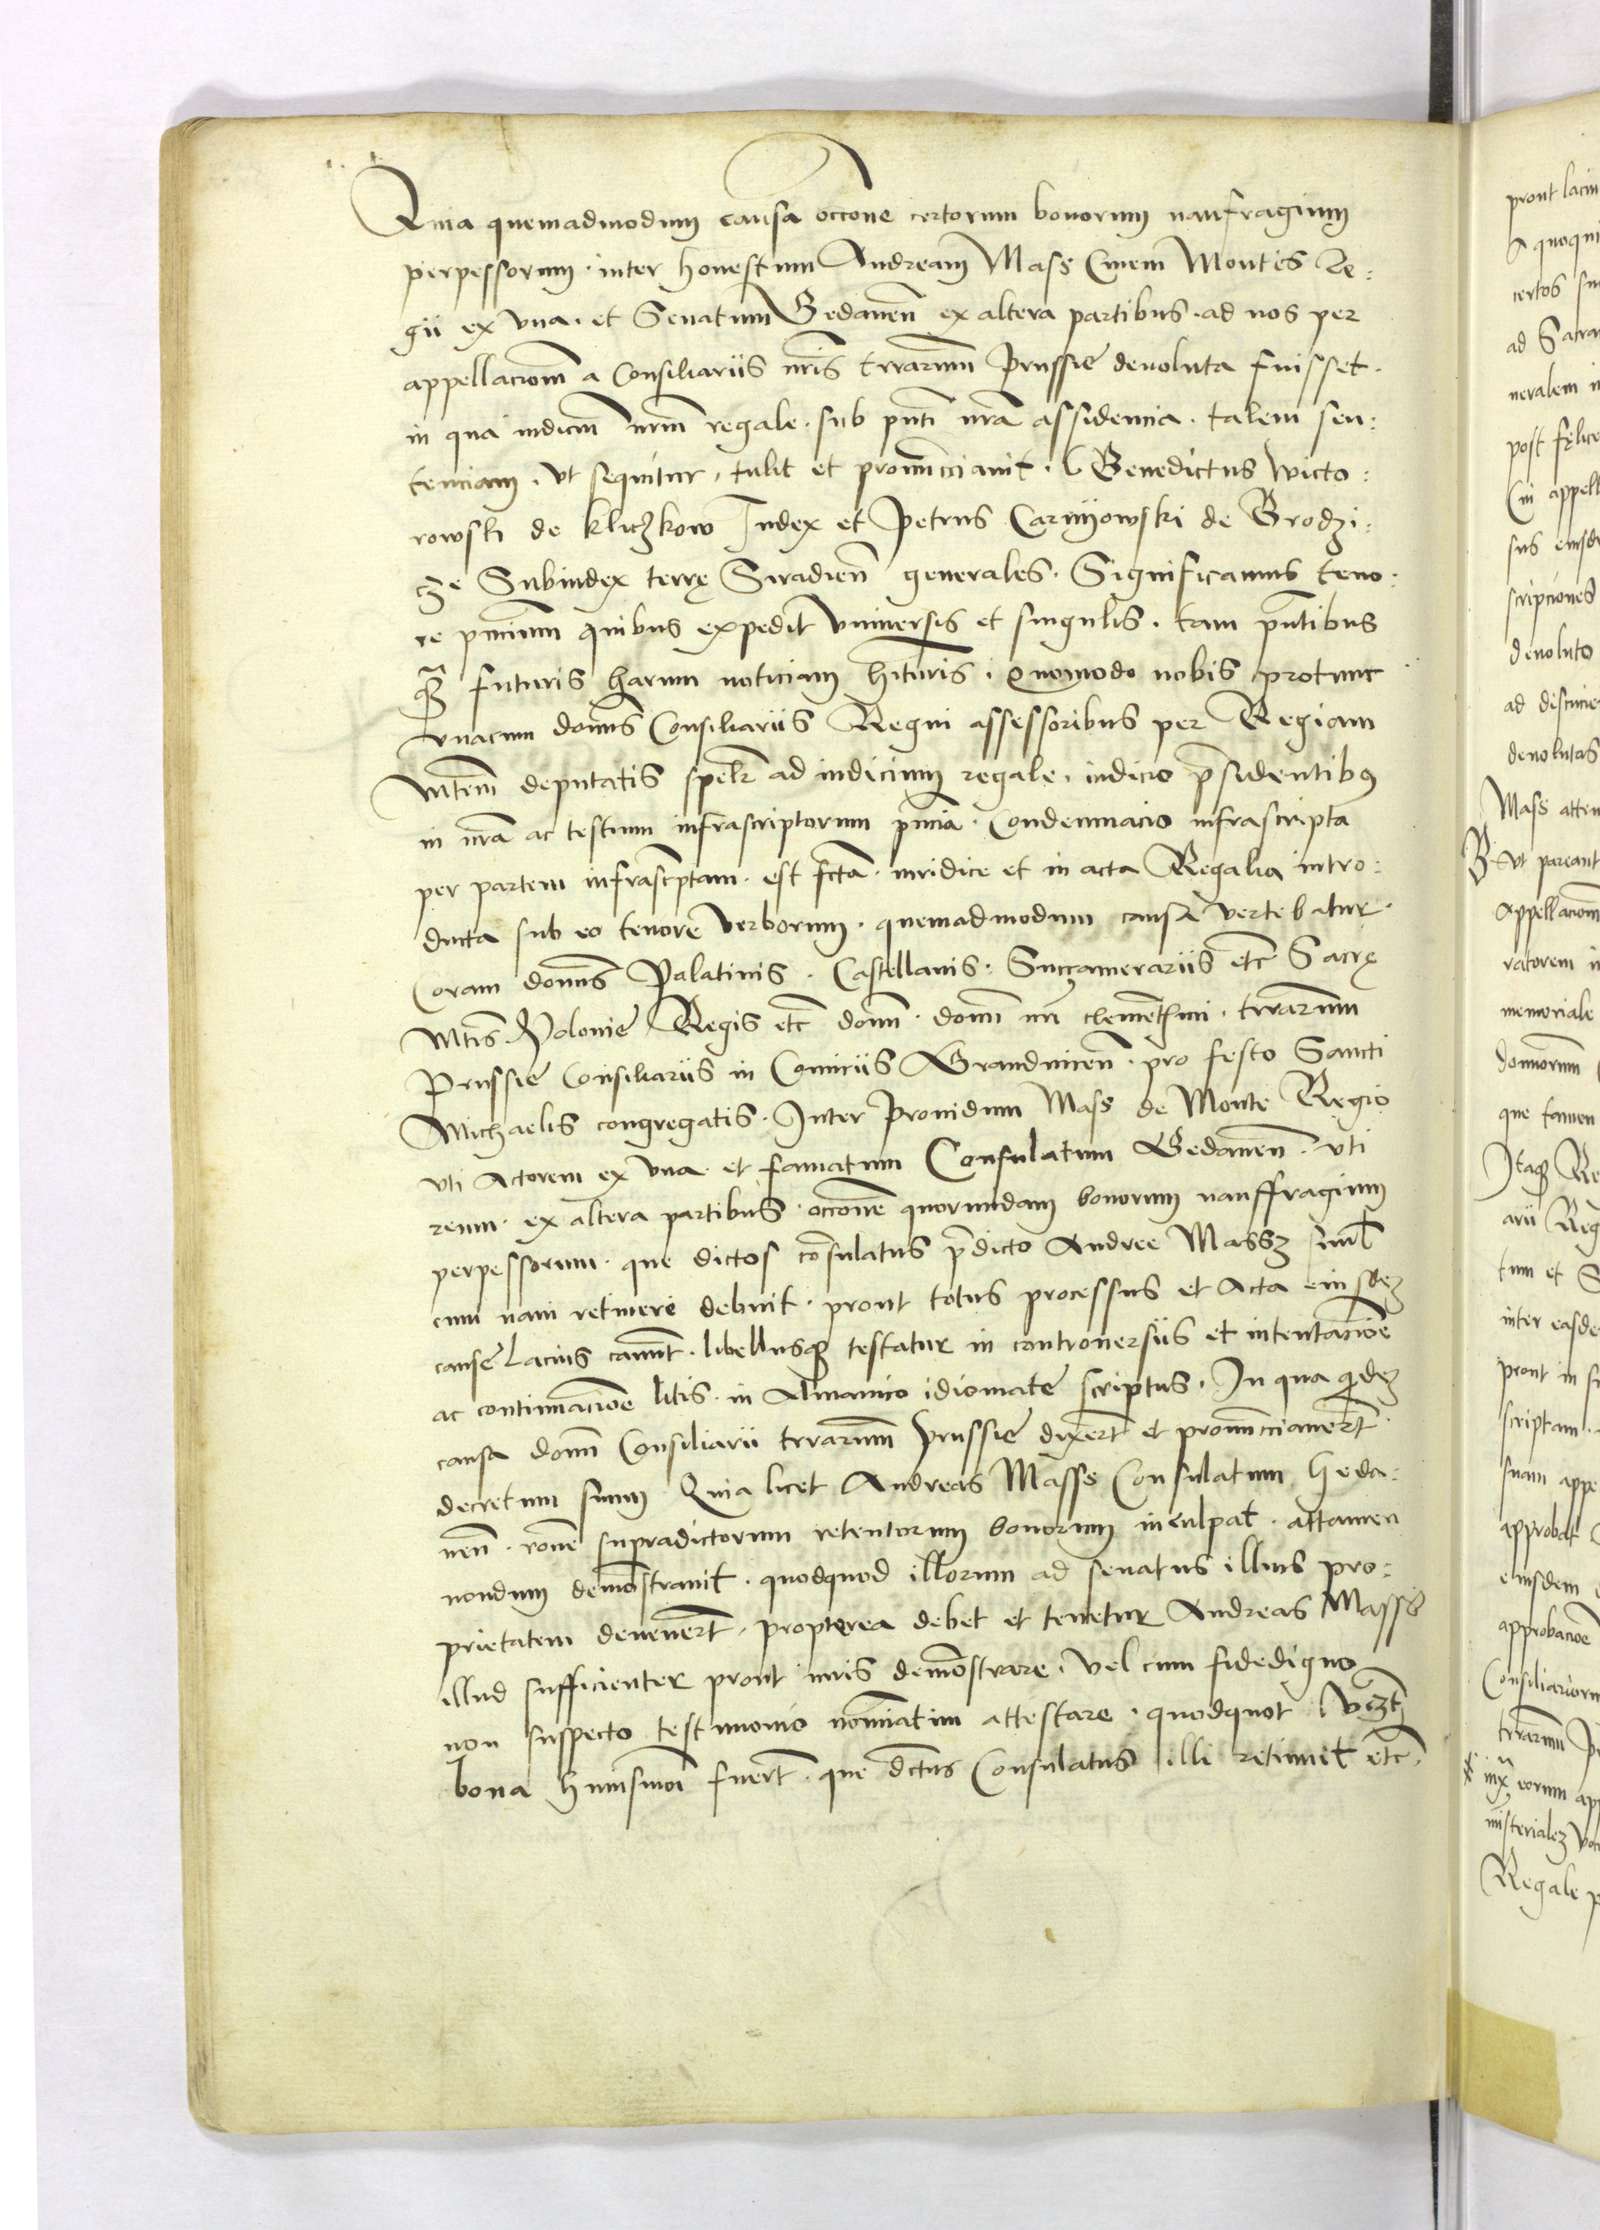 Quia quemadmodum causa occone certorum bonorum naufragium
perpessorum · inter honestum Andream Mass Ciuem Montis Re:
gii ex vna · et Senatum Gedanen ex altera partibus · ad nos per
appellacionem a Consiliariis nris trrarum Prussie deuoluta fuisset ·
in qua iudicium nrm regale · sub pnti nra assidencia · talem sen:
tenciam · vt sequitur · tulit et pronuncciauit · Benedictus Wicto:
rowski de Kliczkow Iudex et Petrus Carnijowski de Brodzi:
cze Subiudex terrę Siradien generales · Significamus teno:
re pncium quibus expedit vniuersis et singulis · tam pntibus
q̃ futuris harum noticiam hituris · quomodo nobis protunc
vnacum donis Consiliariis Regni assessoribus per Regiam
Mtem deputatis spelr ad iudicium regale · iudicio psidentibus
in nra ac testium infrascriptorum pncia · Condemnacio infrascripta
per partem infrascptam · est fcta · iuridice et in acta Regalia intro:
ducta sub eo tenore verborum · quemadmodum causa vertebatur ·
Coram donis Palatinis · Castellanis · Succamerariis etc Sacrę
Mtis Polonie Regis etc domi · domi nri clementhmi · trrarum
Prussie Consiliariis in Comiciis Graudnicen · pro festo Sancti
Michaelis congregatis · Inter Prouidum Mass de Monte Regio
vti Actorem ex vna · et famatum Consulatum Gedanen · vti
reum · ex altera partibus · occone quorundam bonorum nauffragium
perpessorum · que dictos cosulatus pdicto Andree Massz siml
cum naui retinere debuit · prout totus processus et Acta eiusdez
cause lacius canunt · libellusq testatur in controuersiis et intentacione
ac continuacione litis · in Almanico idiomate scriptus · In qua qidez
causa domi Consiliarii trrarum Prussie dixert et pronuncciauert
decretum suum Quia licet Andreas Masss Consulatum Geda:
nen · rone supradictorum retentorum bonorum inculpat · attamen
nondum demostrauit · quodquod illorum ad senatus illius pro:
prietatem deuenert · propterea debet et tenetur Andreas Masss
illud sufficienter prout iuris demostrare · vel cum fidedigno
non suspecto testimonio nominatim attestare · quodquot vczt
bona huiusmoi fuert · que dctus Consulatus illi retinuit etc ·